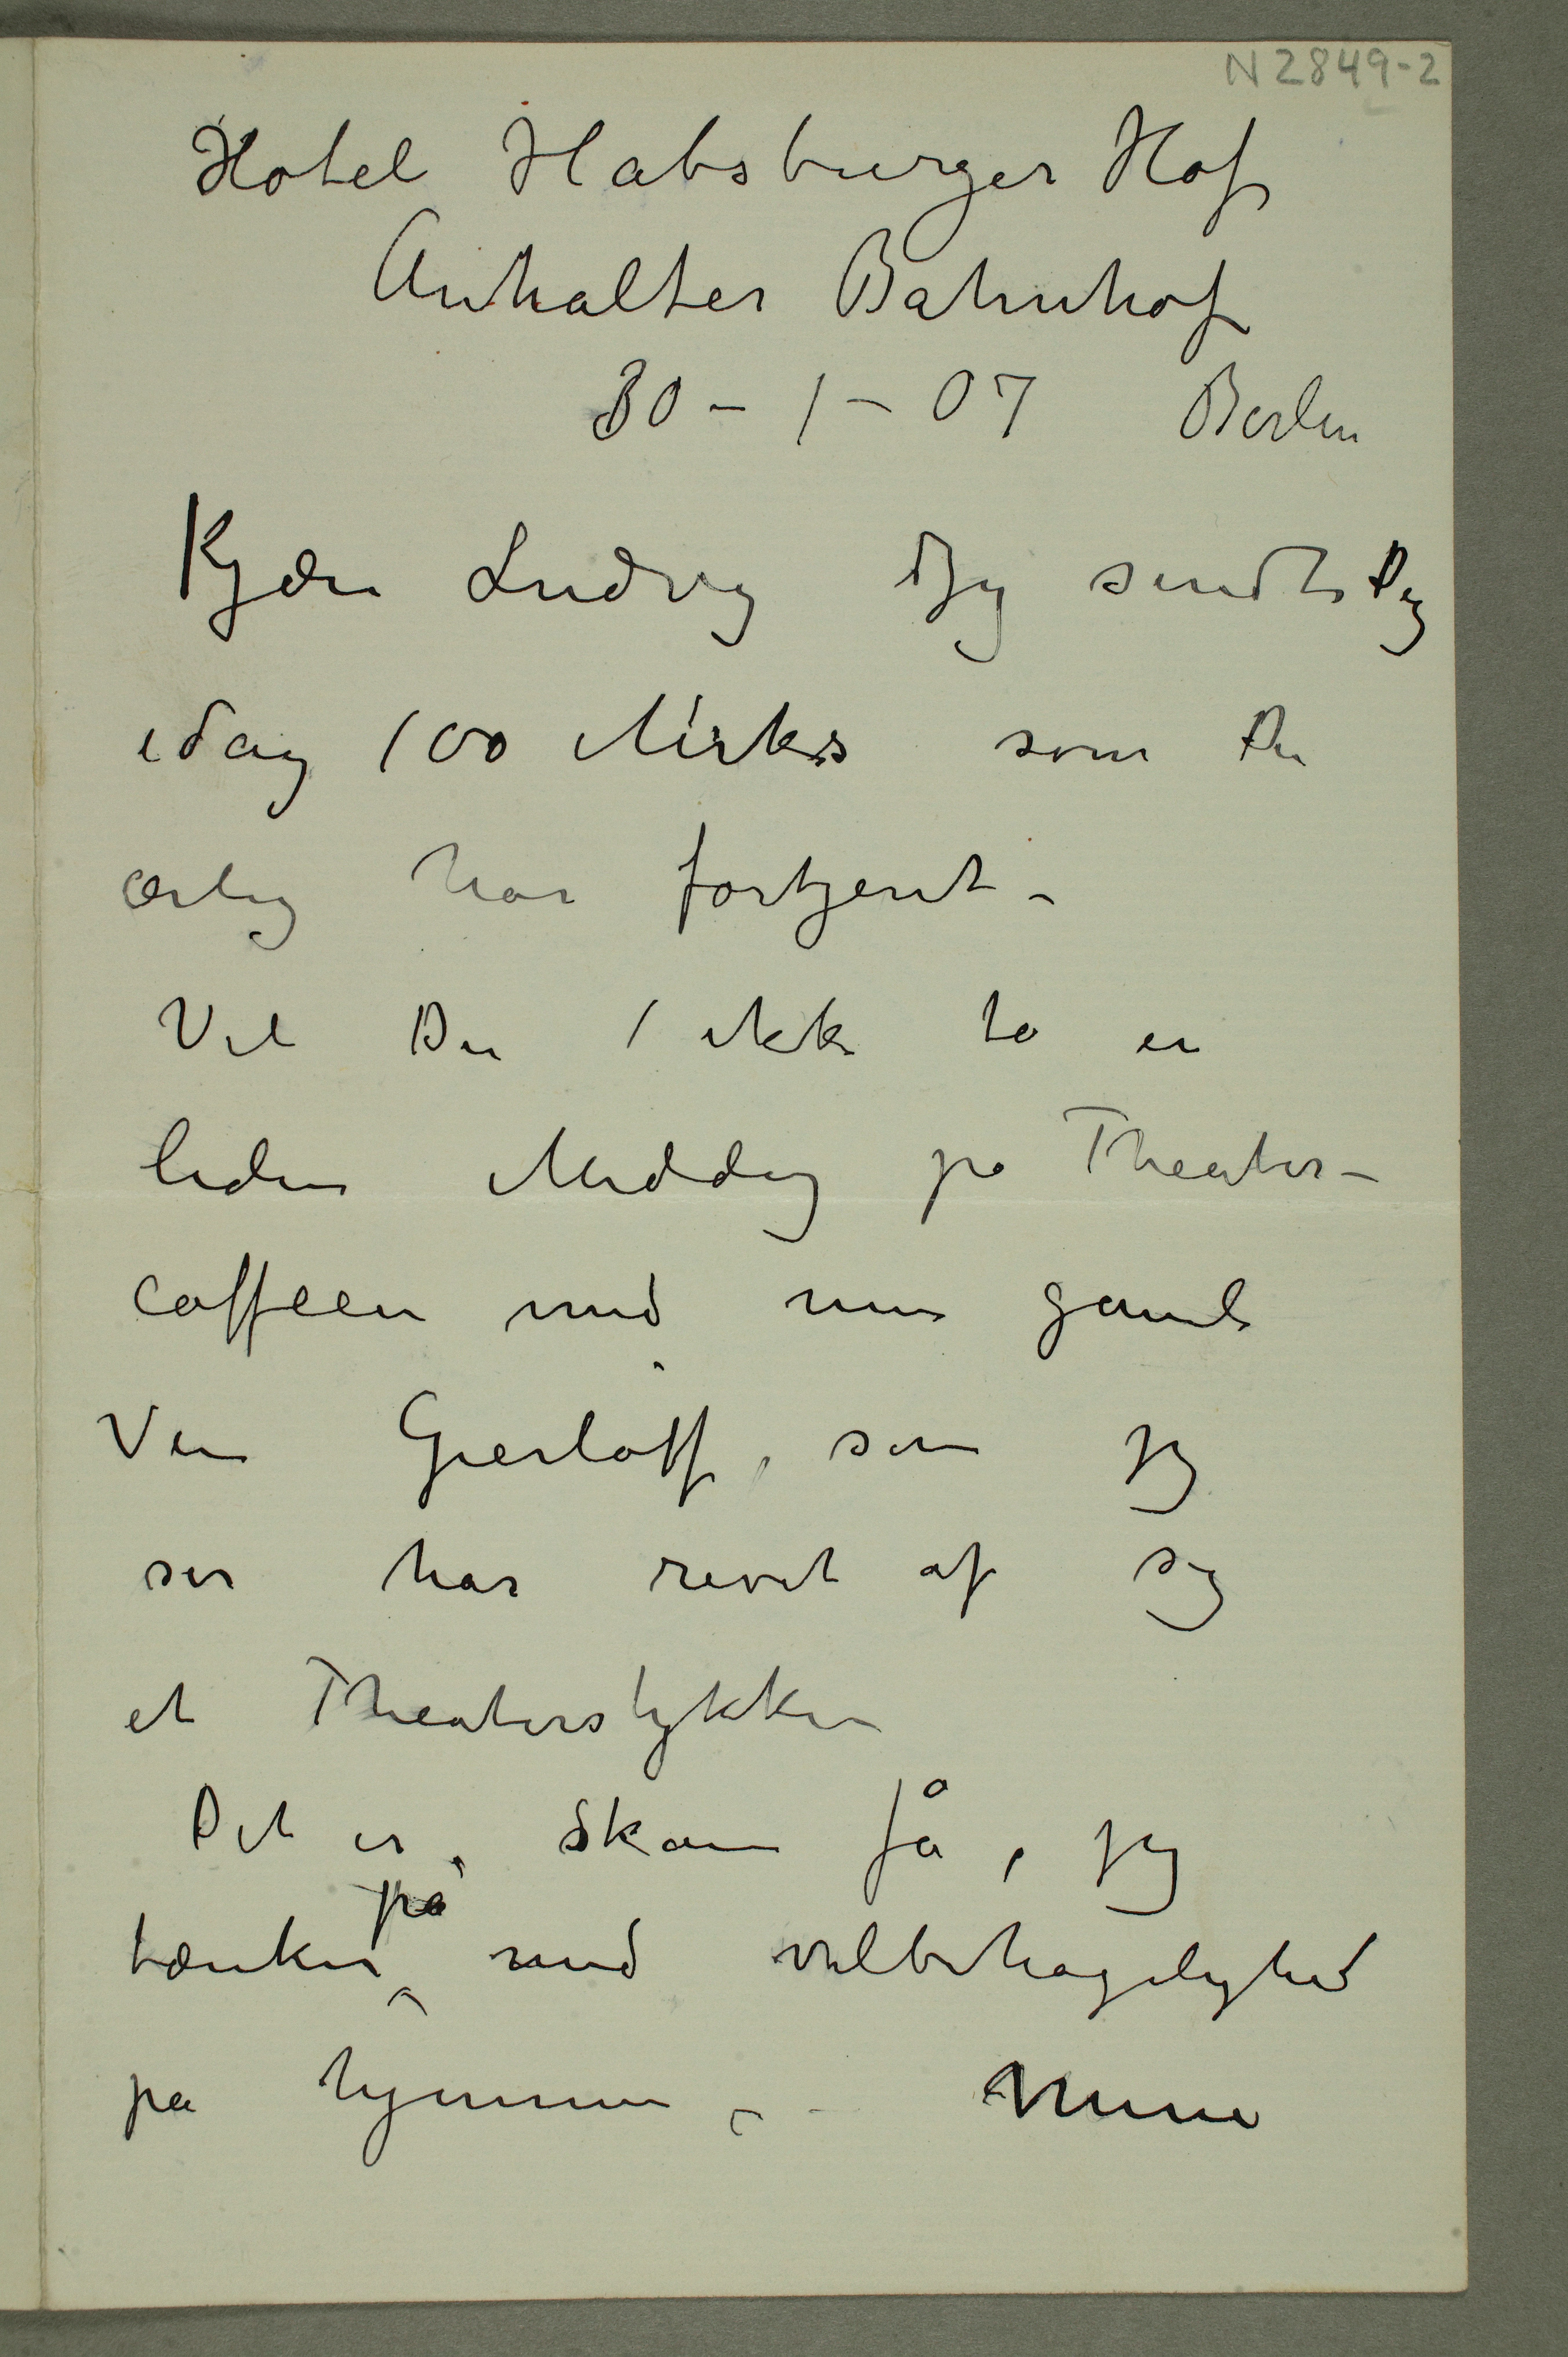 N 2849-2
Hotel Habsburger Hof
Anhalter Bahnhof
30 – 1 – 07 Berlin
Kjære Ludvig Jeg sendte Dig
idag 100 Mirks som Du
ærlig har fortjent –
Vil Du / ikke ta en
liden Middag på Theater-
caffeen med min gamle
Ven Gierløff, som jeg
ser har revet af sig
et Theaterstykke –
Det er, skam få, jeg
på
tænker med velbehagelighed
på hjemme –